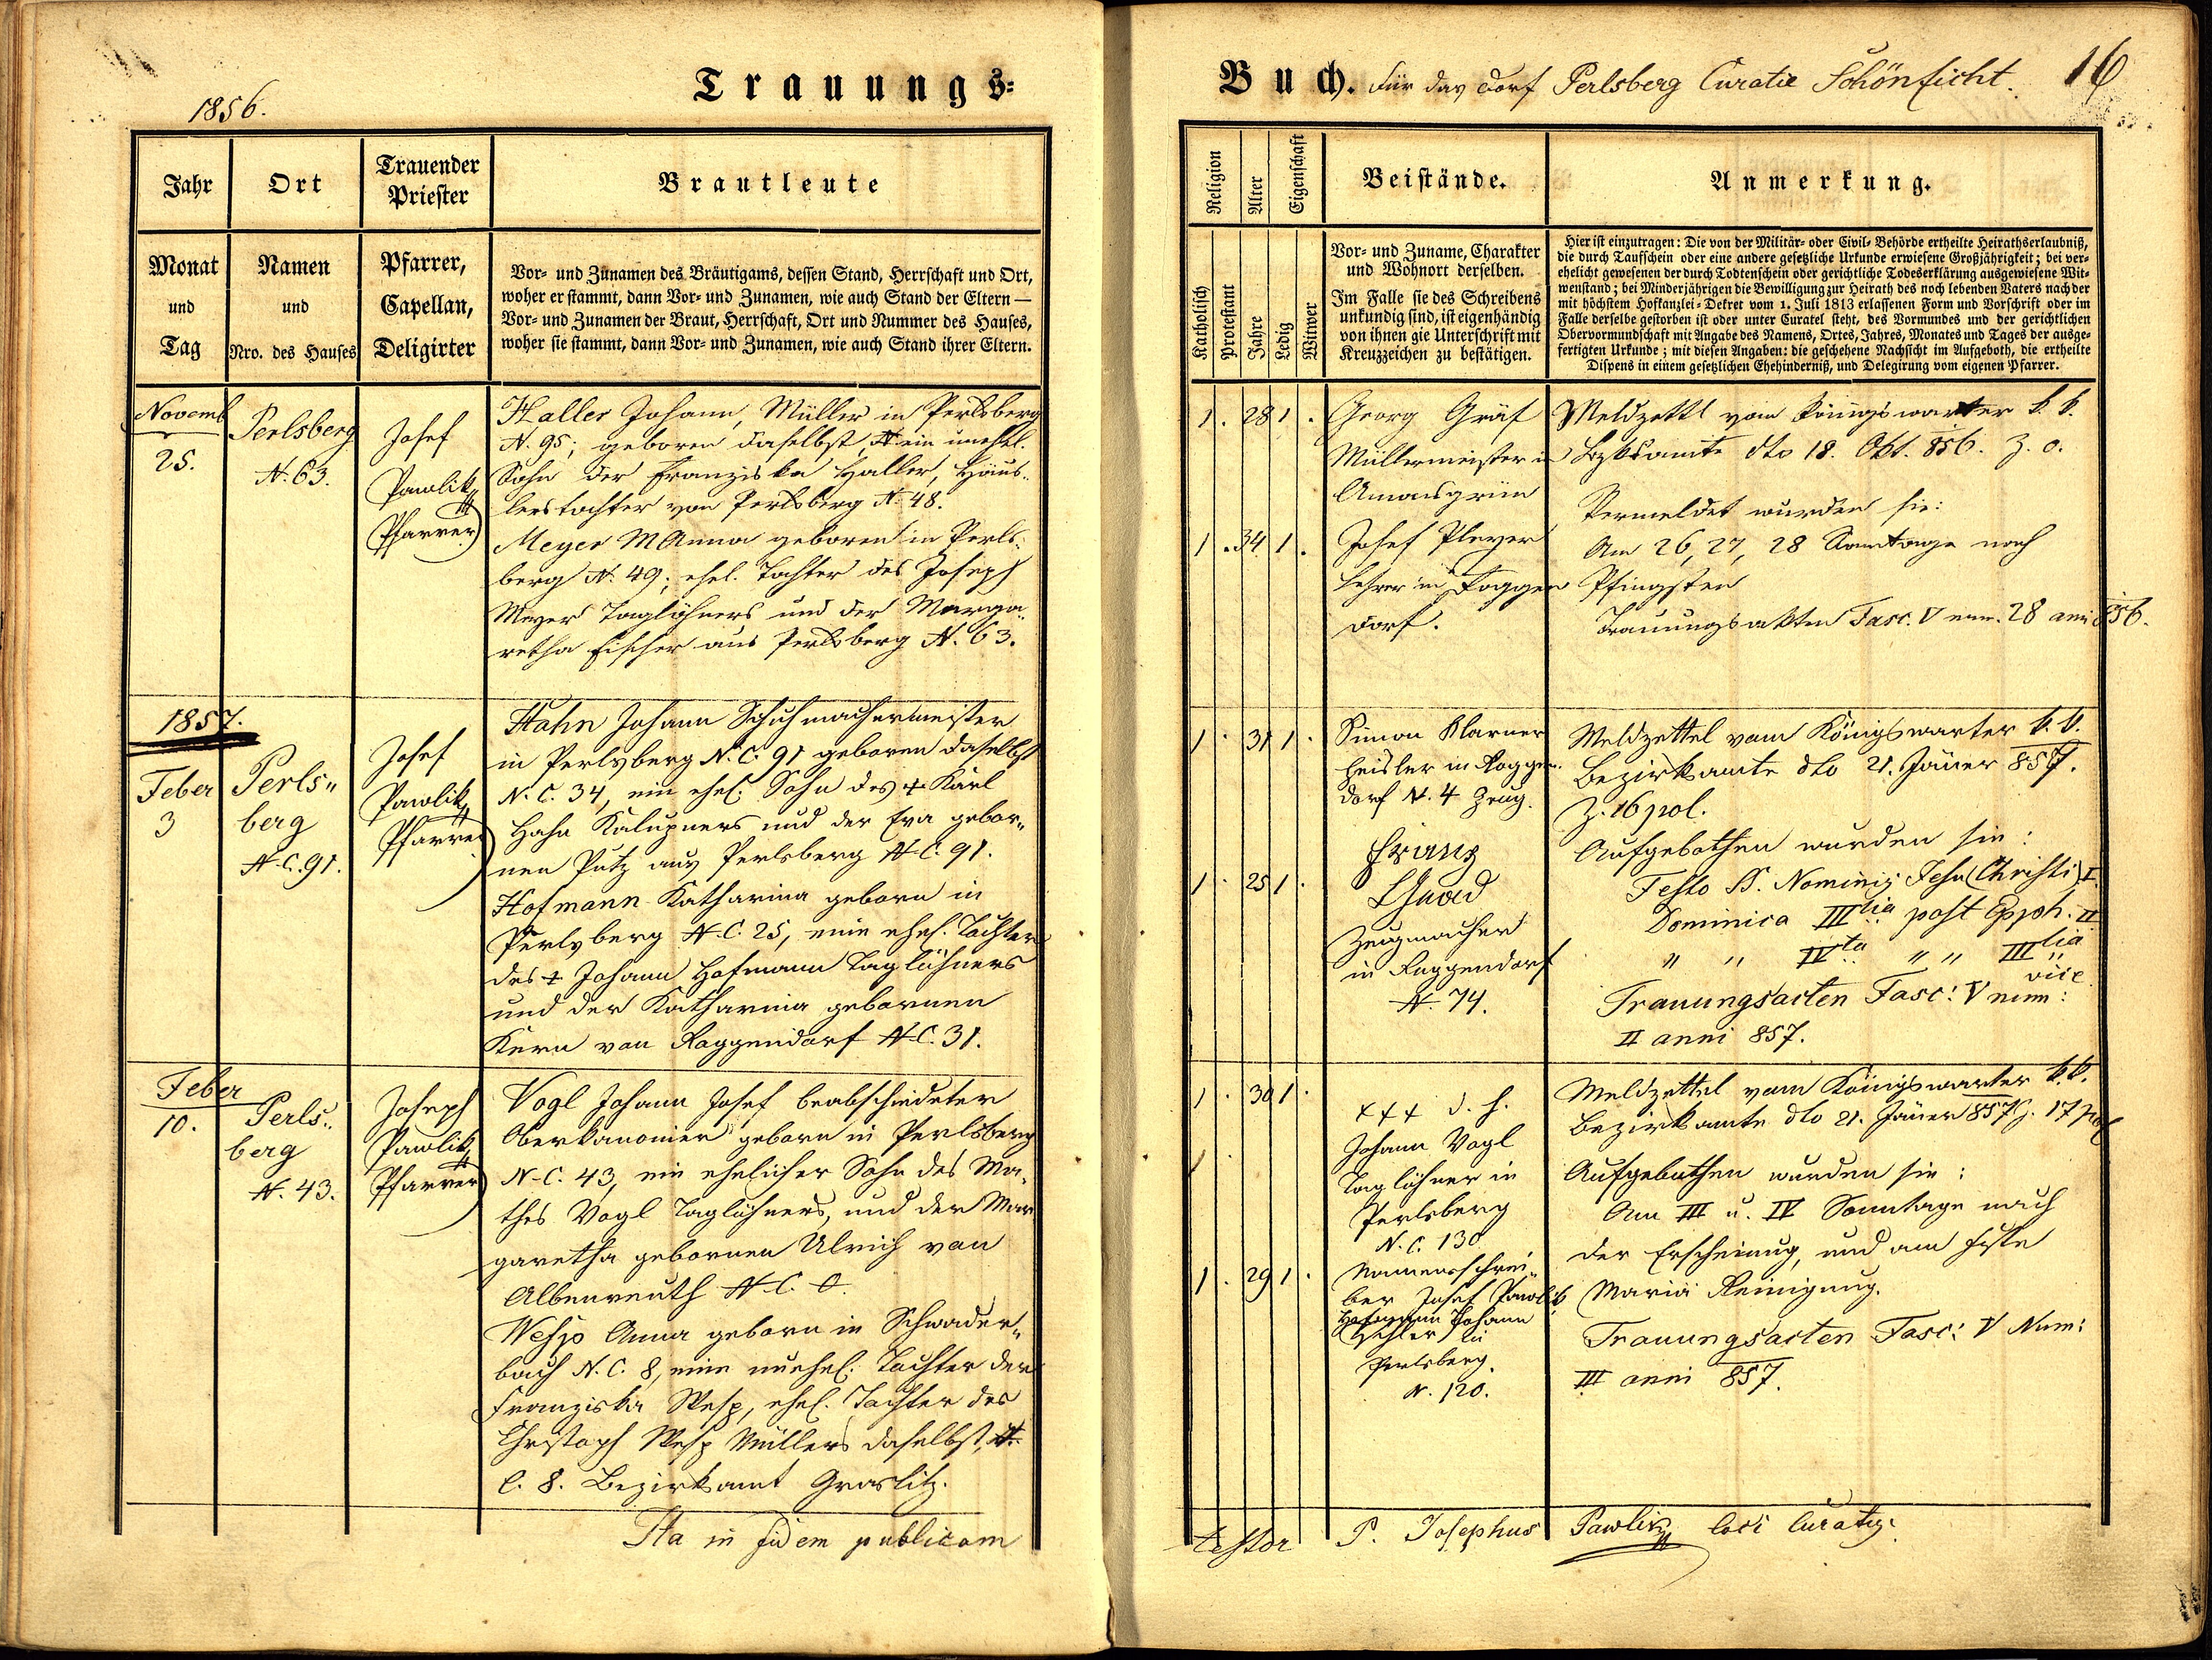 1856.
Trauungs-
Jahr
Ort
Trauender
Priester
Brautleute
Monat
und
Tag
Namen
und
Nro. des Hauses
Pfarrer,
Capellan,
Deligirter
Vor- und Zunamen des Bräutigams, dessen Stand, Herrschaft und Ort,
woher er stammt, dann Vor- und Zunamen, wie auch Stand der Eltern —
Vor- und Zunamen der Braut, Herrschaft, Ort und Nummer des Hauses,
woher sie stammt, dann Vor- und Zunamen, wie auch Stand ihrer Eltern.
Novemb
25.
Perlsberg
N. 63.
Josef
Pawlik
Pfarrer
Haller Johann, Müller in Perlsberg
N. 95; geboren daselbst, ein unehel.
Sohn der Franziska Haller, Häus-
lerstochter von Perlsberg N. 48.
Meyer MAnna geboren in Perls-
berg N. 49; ehel. Tochter des Joseph
Meyer Taglöhners und der Marga-
retha Fischer aus Perlsberg N. 63.
1857.
Feber
3
Perls„
berg
N.C. 91.
Josef
Pawlik
Pfarrer
Hahn Johann Schuhmachermeister
in Perlsberg N.C. 91 geboren daselbst
N.C. 34, ein ehel. Sohn des † Karl
Hahn Kalupners und der Eva gebor„
nen Putz aus Perlsberg N.C. 91.
Hofmann Katharina geborn in
Perlsberg N.C. 25, eine ehel. Tochter
des † Johann Hofmann Taglöhners
und der Katharina gebornen
Kern von Roggendorf N.C. 31.
Feber
10.
Perls„
berg
N. 43.
Joseph
Pawlik
Pfarrer
Vogl Johann Josef beabschiedeter
Oberkanonier geborn in Perlsberg
N.C. 43, ein ehelicher Sohn des Ma-
thes Vogl Taglöhners, und der Mar
garetha gebornen Ulrich von
Albenreuth N.C. 0.
Wesp Anna geborn in Schwader„
bach N.C. 8, eine unehel. Tochter der
Franziska Wesp, ehel. Tochter des
Christoph Wesp Müllers daselbst, N.
C. 8. Bezirksamt Graslitz.
Ita in fidem publicam
Buch. Für das Dorf Perlsberg Curatie Schönficht. 16
Religion
Alter
Eigenschaft
Beistände.
Anmerkung.
Katholisch
Protestant
Jahre
Ledig
Witwer
Vor- und Zuname, Charakter
und Wohnort derselben.
Im Falle sie des Schreibens
unkundig sind, ist eigenhändig
von ihnen gie Unterschrift mit
Kreuzzeichen zu bestätigen.
Hier ist einzutragen: Die von der Militär- oder Civil- Behörde ertheilte Heirathserlaubniß,
die durch Taufschein oder eine andere gesetzliche Urkunde erwiesene Großjährigkeit; bei ver-
ehelicht gewesenen der durch Todtenschein oder gerichtliche Todeserklärung ausgewiesene Wit-
wenstand; bei Minderjährigen die Bewilligung zur Heirath des noch lebenden Vaters nach der
mit höchstem Hofkanzlei-Dekret vom 1. Juli 1813 erlassenen Form und Vorschrift oder im
Falle derselbe gestorben ist oder unter Curatel steht, des Vormundes und der gerichtlichen
Obervormundschaft mit Angabe des Namens, Ortes, Jahres, Monates und Tages der ausge-
fertigten Urkunde; mit diesen Angaben: die geschehene Nachsicht im Aufgeboth, die ertheilte
Dispens in einem gesetzlichen Ehehinderniß, und Delegirung vom eigenen Pfarrer.
1 . 28 1 .
Georg Gräf
Müllermeister in
Amonsgrün
1 . 34 1 .
Josef Pleyer
Lehrer in Roggen
dorf.
Meldzettl vom Königswarter k. k.
Bzksamte dto 18. Okt. 856. Z. 0.
Vermeldet wurden sie:
Am 26, 27, 28 Sonntage nach
Pfingsten
Trauungsakten Fasc. V num. 28 anni 856.
1 . 31 1 .
Simon Klarner
Heisler in Roggen-
dorf N. 4 Zeug.
1 . 25 1 .
Franz
Zeugmacher
in Roggendorf
N. 74.
Meldzettel vom Königswarter k. k.
Bezirksamte dto 21. Jäner 857.
Z. 16 pol.
Aufgebothen wurden sie:
Festo SS. Nominis Jesu (Christi) I.
Dominica IIItia post Epph. II
„ „ IVta „ „ IIItia
vice
Trauungsacten Fasc: V num:
II anni 857.
1 . 30 1 .
+++ d. h.
Johann Vogl
Taglöhner in
Perlsberg
N.C. 130
1 . 29 1 .
Namensschrei„
ber Josef Pawlik
Hofmann Johann
in
Perlsberg.
N. 120.
Meldzettel vom Königswarter k. k.
Bezirksamte dto 21. Jäner 857 Z. 17 pol
Aufgebothen wurden sie:
Am III u. IV Sonntage nach
der Erscheinung, und am Feste
Mariä Reinigung.
Trauungsacten Fasc: V Num:
III anni 857.
testor P. Josephus Pawlik loci Curatus.